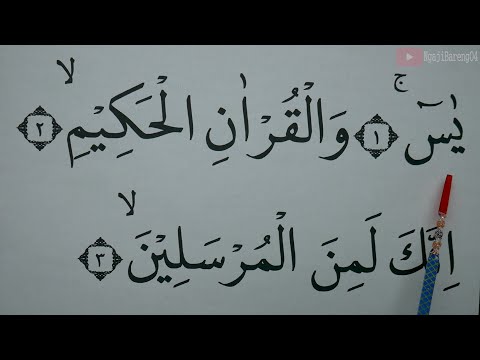 NgajiBareng04
يٰسۤ ۚ ١ وَالْقُرْاٰنِ الْحَكِيْمِۙ ٢
اِنَّكَ لَمِنَ الْمُرْسَلِيْنَۙ ٣